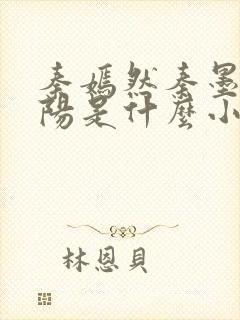 秦嫣然秦墨
陽是什麼小
林恩貝